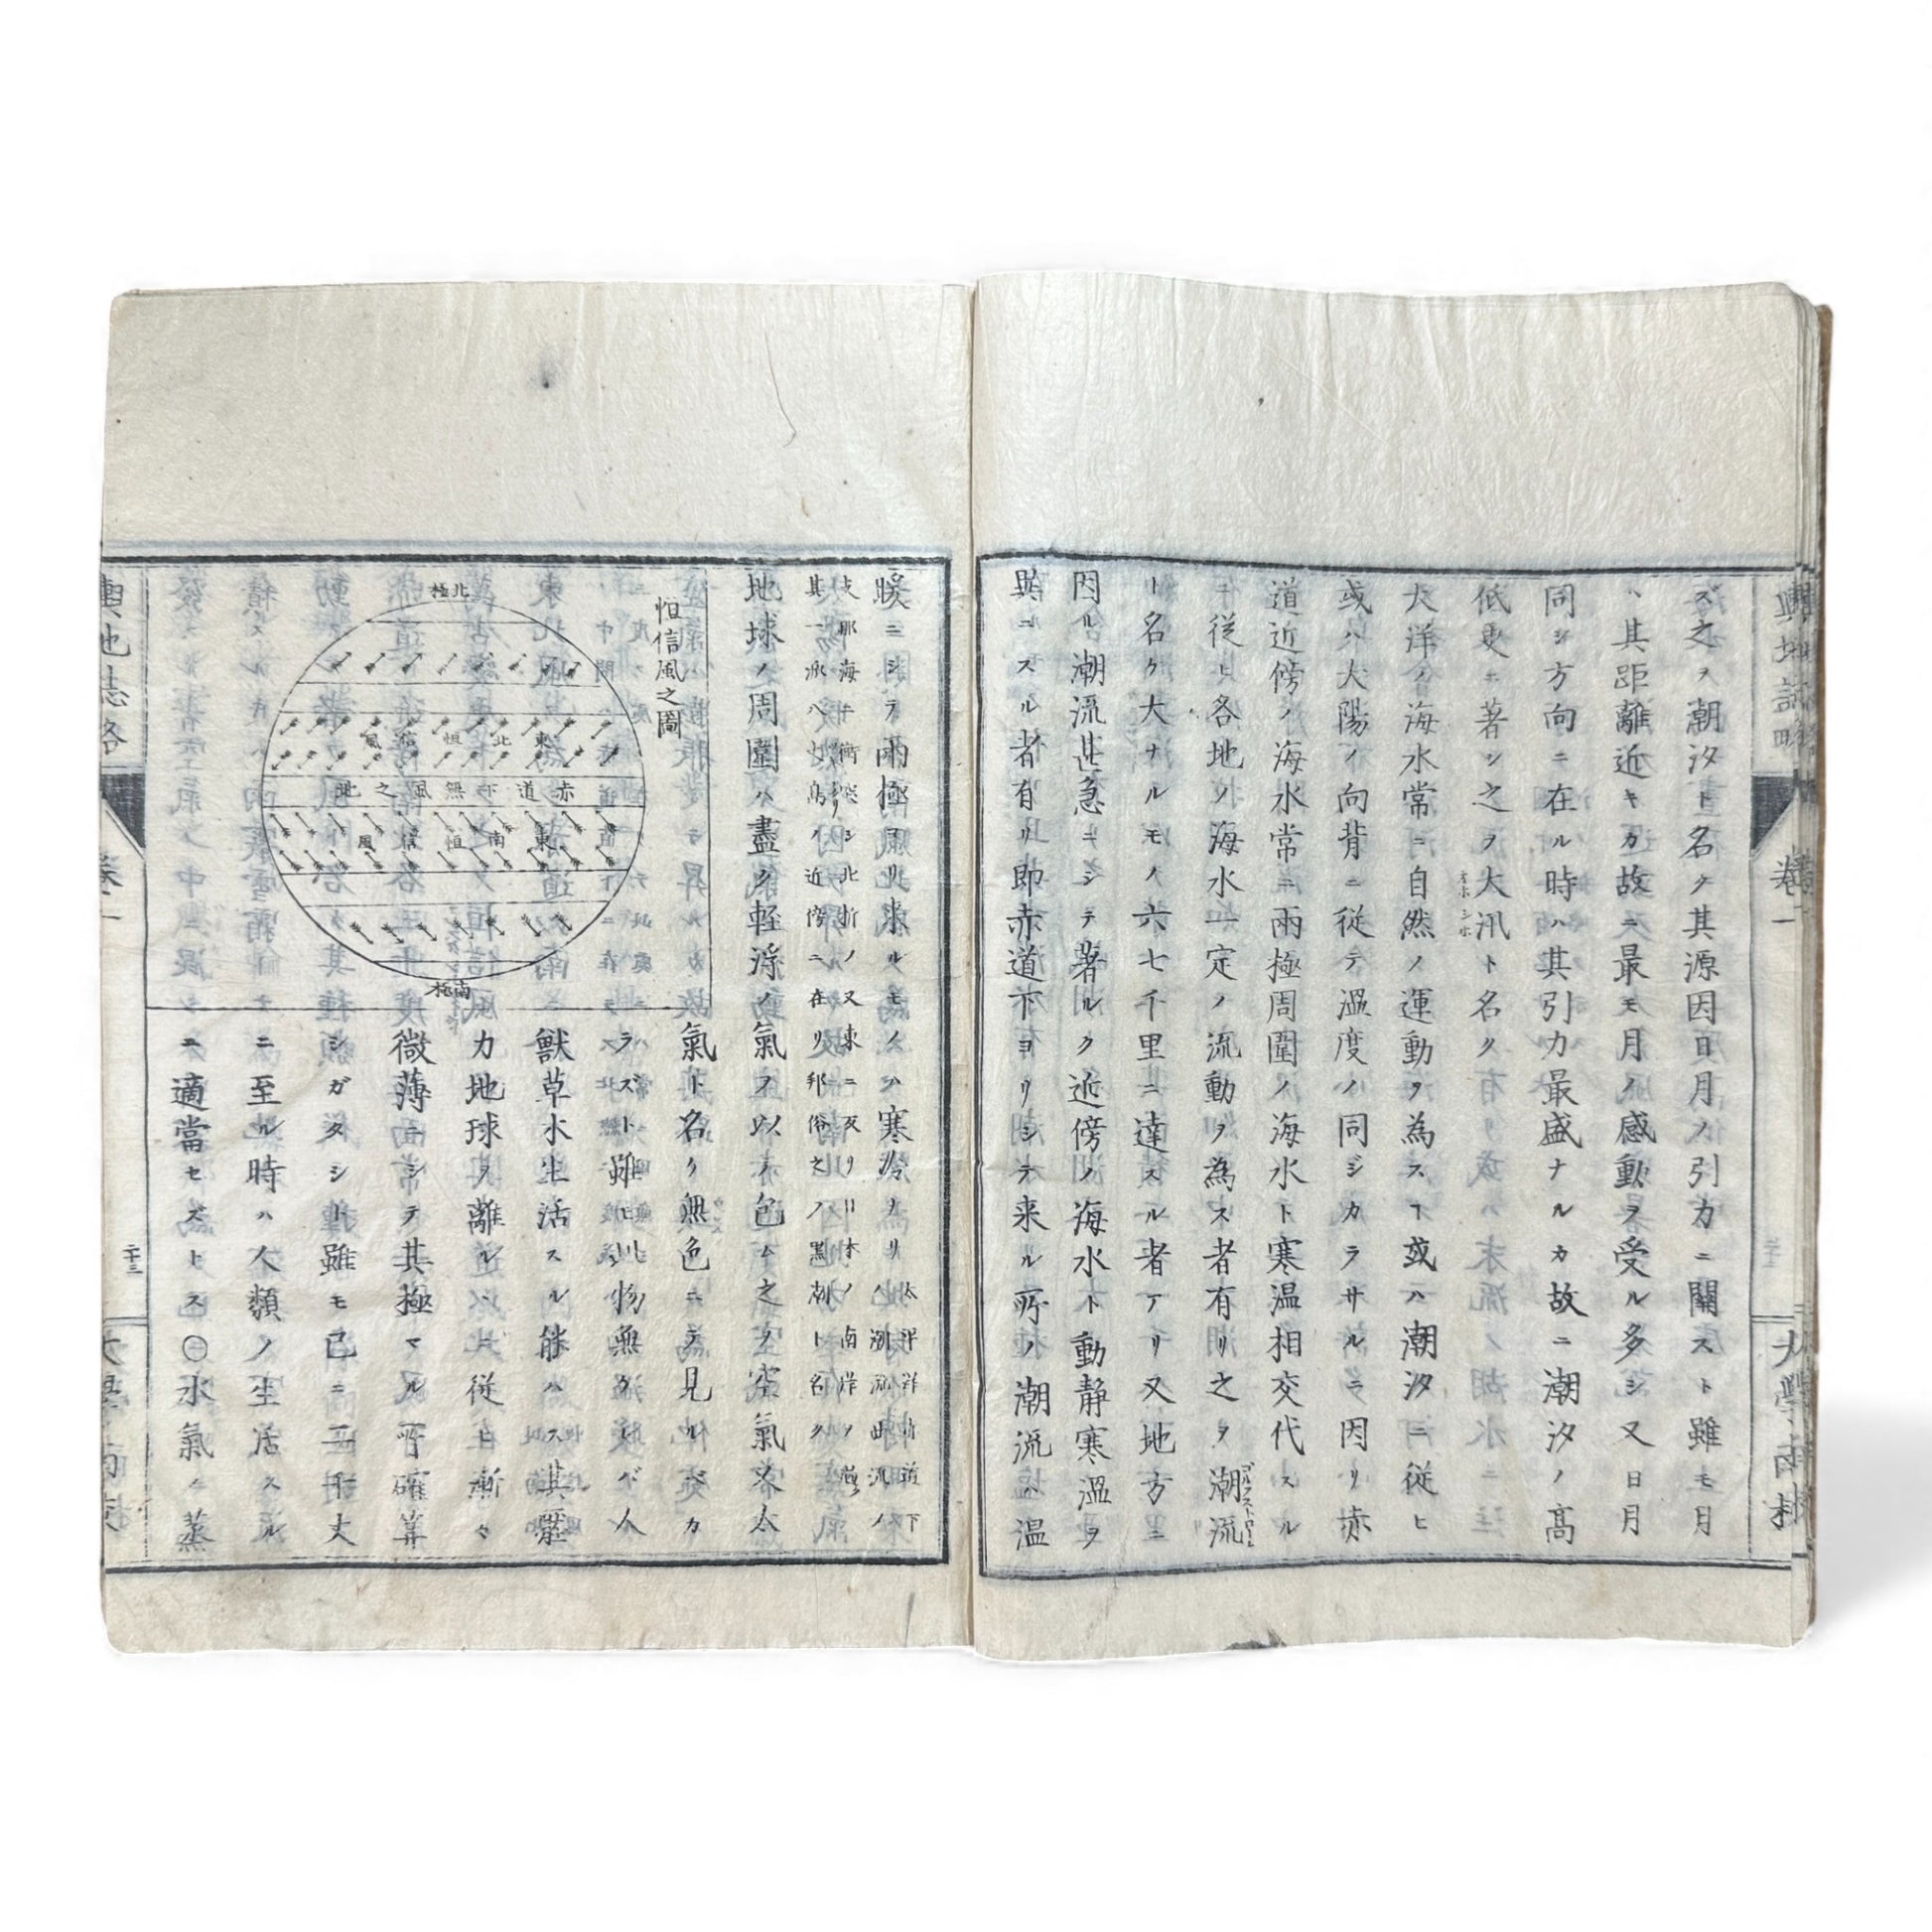 ズ之ヲ潮汐ト名ク其源因日月ノ引力ニ關スト雖モ月
ハ其距離近キカ故ニ最モ月ノ感動ヲ受ル多シ又日月
同シ方向ニ在ル時ハ其引力最盛ナルカ故ニ潮汐ノ髙
低更ニ著シ之ヲ大汛ト名ク
オホシホ
大洋ノ海水常ニ自然ノ運動ヲ為ス丅或ハ潮汐ニ従ヒ
或ハ大陽ノ向背ニ従テ溫度ノ同ジカラサルニ因リ赤
道近傍ノ海水常ニ兩極周圍ノ海水ト寒温相交代スル
ニ従ヒ各地ノ海水一定ノ流動ヲ為ス者有リ之ヲ潮流
ゴルフストローム
ト名ク大ナルモノハ六七千里ニ達スル者アリ又地方ニ
因ル潮流甚急ニシテ著ルク近傍ノ海水ト動静寒溫ヲ
異ニスル者有リ即赤道下ヨリシテ来ル所ノ潮流ハ温
暖ニシテ兩極ヨリ来ルモノハ寒冷ナリ
太平洋赤道下ノ潮流此流ノ
支那海ヲ衝突シ北折ノ又東ニ反リ日本ノ南岸ヲ
其ノ八丈島ノ近傍ニ在リ邦俗之ノ黒潮ト名ク
地球ノ周圍ハ盡ク軽浮ノ氣ヲ以テ色ム之ヲ空氣又太
氣ト名ク無色ニテ見ルベカ
ラズト雖𪜈此物無クレバ人
獸草木生活スル能ハス其壓
力地球ヲ離ルヽニ従ヒ漸々
微薄ニシテ其極マル所確算
シガタシト雖モ已ニ二千丈
ニ至ル時ハ人類ノ生活スル
ニ適當セズトス〇水氣ノ蒸
恒信風之圖
北極
東北恒信風
赤道下無風之地
東南恒信風
南極
輿地誌略
卷一
二十三
大學南校